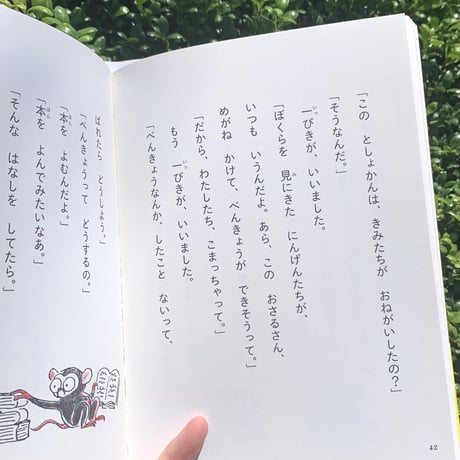 「この としょかんは、きみたちが おねがいしたの?」
「そうなんだ。」
一ぴきが、いいました。
「ぼくらを 見にきた にんげんたちが、
いつも いうんだよ。あら、この おさるさん、
めがね かけて、べんきょうが できそうって。」
「だから、わたしたち、こまっちゃって。」
もう 一ぴきが、いいました。
「べんきょうなんか、したこと ないって、
42
ばれたら どうしよう。」
「べんきょうって どうするの。」
「本を よむんだよ。」
「本を よんでみたいなあ。」
「そんな はなしを してたら。」